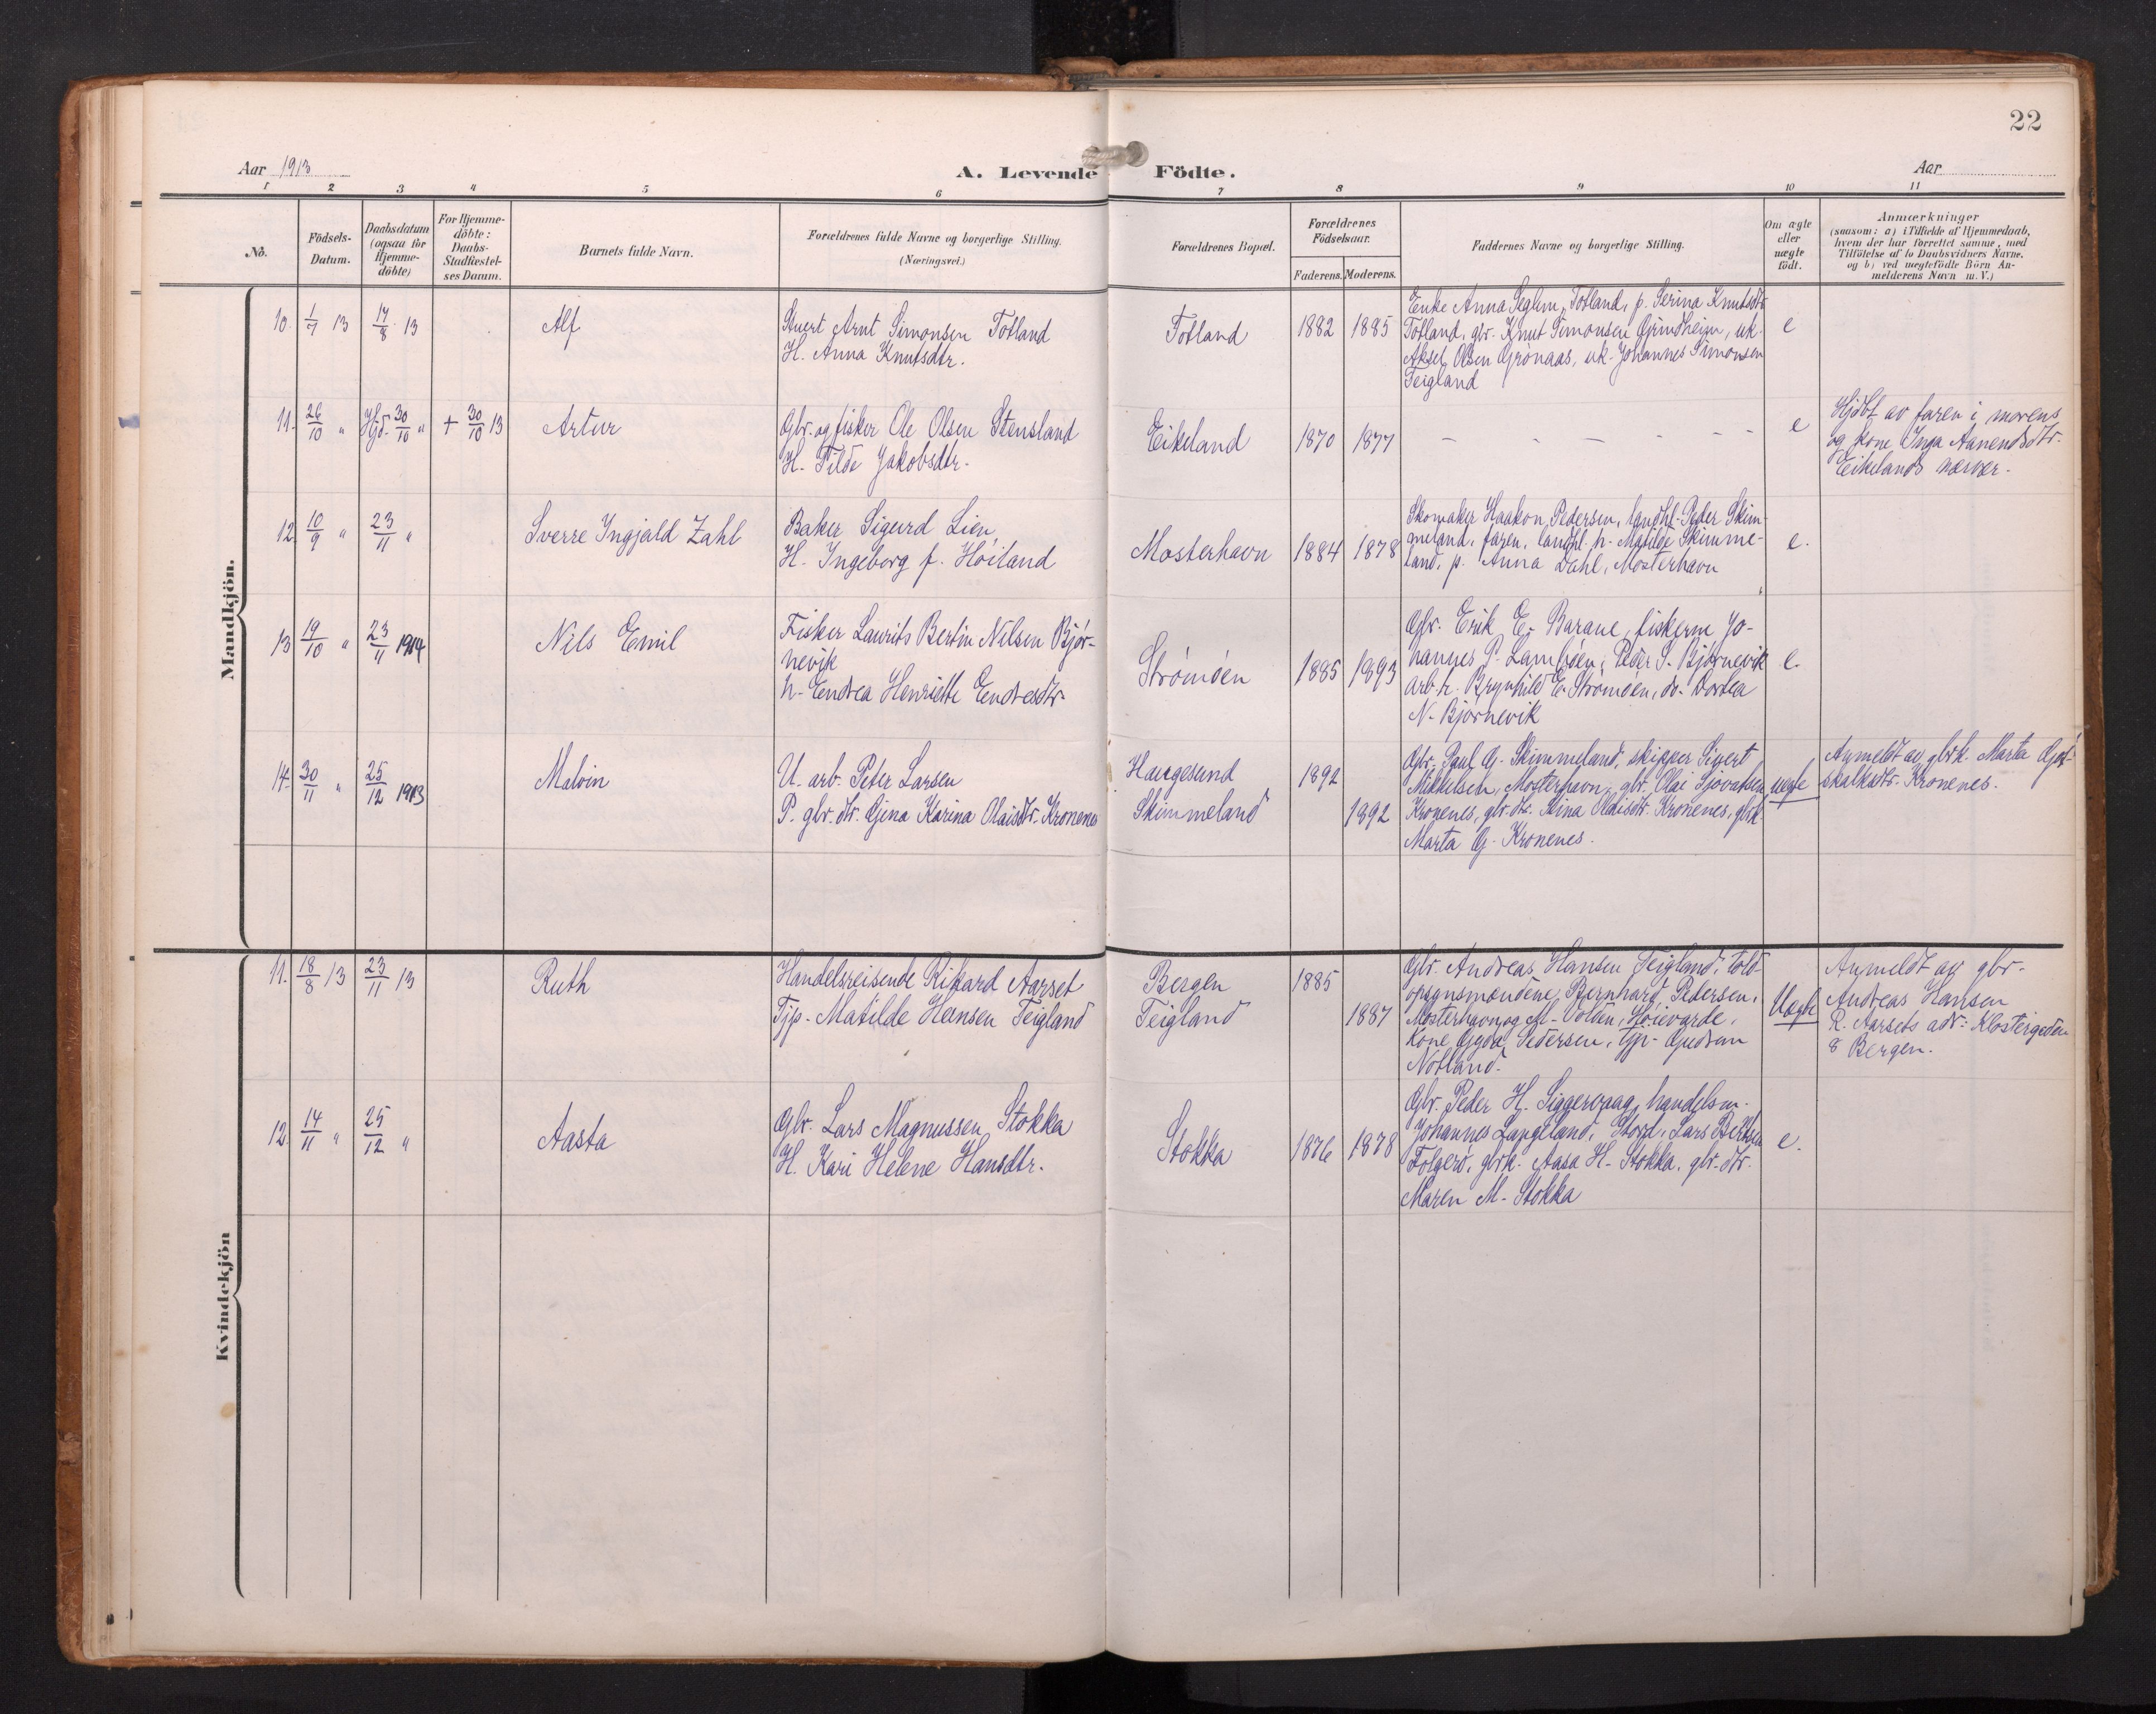 22
Aar 1913
A. Levende Födte.
Aar
1 2 3 4 5 6 7 8 9 10 11
No.
Födsels-
Datum.
Daabsdatum
(ogsaa for
Hjemme-
döbte)
For Hjemme-
döbte:
Daabs-
Stadfæstel-
ses Datum.
Barnets fulde Navn.
Forældrenes fulde Navne og borgerlige Stilling.
(Næringsvei.)
Forældrenes Bopæl.
Forældrenes
Födselsaar.
Faderens. Moderens.
Faddernes Navne og borgerlige Stilling.
Om ægte
eller
uægte
födt.
Anmærkninger
(saasom: a) i Tilfælde af Hjemmedaab,
hvem der har forrettet samme, med
Tilföielse af to Daabsvidners Navne.
og b) ved uægtefödte Börn An-
melderens Navn m. V.)
Mandkjön.
10. 1/7 13
17/8 13
Alf
Stuert Arnt Simonsen Totland
H. Anna Knutsdtr.
Totland
1882 1885
Enke Anna Seglem, Totland, p. Serina Knutsdtr.
Totland, gbr. Knut Simonsen Grindheim, uk.
Aksel Olsen Grønaas, uk. Johannes Simonsen
Teigland
e
11. 26/10 "
Hjd. 30/10 "
+ 30/10 13
Artur
Gbr. og fisker Ole Olsen Stensland
H. Tilda Jakobsdtr.
Eikeland
1870 1877
– – – – – –
e
Hjdbt av faren i morens
og kone Inga Aanendsdtr.
Eikelands nærvær.
12. 10/9 "
23/11 "
Sverre Ingjald Zahl
Baker Sigurd Lien
H. Ingeborg f. Høiland
Mosterhavn
1884 1878
Skomaker Haakon Pedersen, landhl. Peder Skim-
meland, faren, landhl. h. Matilde Skimme-
land, p. Anna Dahl, Mosterhavn
e.
13 19/10 "
23/11 1914
Nils Emil
Fisker Laurits Bertin Nilsen Bjør-
nevik
h. Endrea Henriette Endresdtr.
Strømøen
1885 1893
Gbr. Erik E. Barane, fiskerne Jo-
hannes P. Lambøen, Peder S. Bjørnevik
arb. h. Brynhild E. Strømøen, do. Dortea
N. Bjørnevik
e.
14. 30/11 "
25/12 1913
Malvin
U. arb. Peter Larsen
P. gbr. dtr. Gjina Karina Olaisdtr. Kronenes
Haugesund
Skimmeland
1892
1892
Gbr. Paul G. Skimmeland, skipper Sivert
Mikkelsen, Mosterhavn, gbr. Olai Sjovatsen
Kronenes, gbr. dtr. Stina Olaisdtr. Kronenes, gbrk
Marta G. Kronenes.
uegte
Anmeldt av gbrk. Marta God-
skalksdtr. Kronenes.
Kvindekjön
11. 18/8 13
23/11 13
Ruth
Handelsreisende Rikard Aarset
Tjp. Matilde Hansen Teigland
Bergen
Teigland
1885
1887
Gbr. Andreas Hansen Teigland, told-
opsynsmændene Bernhard Pedersen,
Mosterhavn og M. Volan, Høievarde,
Kone Gyda Pedersen, tjp. Gudrun
Notland.
Uegte
Anmeldt av gbr.
Andreas Hansen
R. Aarsets adr: Klostergaden
8 Bergen.
12. 14/11 "
25/12 "
Aasta
Gbr. Lars Magnussen Stokka
H. Kari Helene Hansdtr.
Stokka
1876 1878
Gbr. Peder H. Siggervaag, handelsm.
Johannes Langeland, Stord, Lars
Folgerø, gbrk. Aasa H. Stokka, gbr. dtr.
Maren M. Stokka
e.